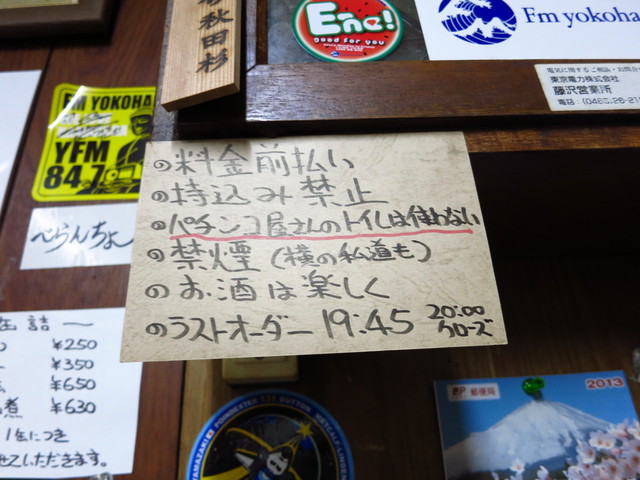 秋田杉
Ene!
Good for you
Fm yokoha
電気に関するご相談・お問合
東京電力株式会社
藤沢営業所
電話:(0466)26-21
FM YOKOHA
YFM
84.7
べらんちょ
◎料金前払い
◎持込み禁止
◎パチンコ屋さんのトイレは使わない
◎禁煙(横の私道も)
◎お酒は楽しく
◎ラストオーダー 19:45 20:00
クローズ
缶詰〜
¥250
¥350
¥650
煮 ¥630
1缶につき
せていただきます。
YAMAZAKI POINDEXTER DUTTON METCALF-LINDENBURGER
郵便局
2013